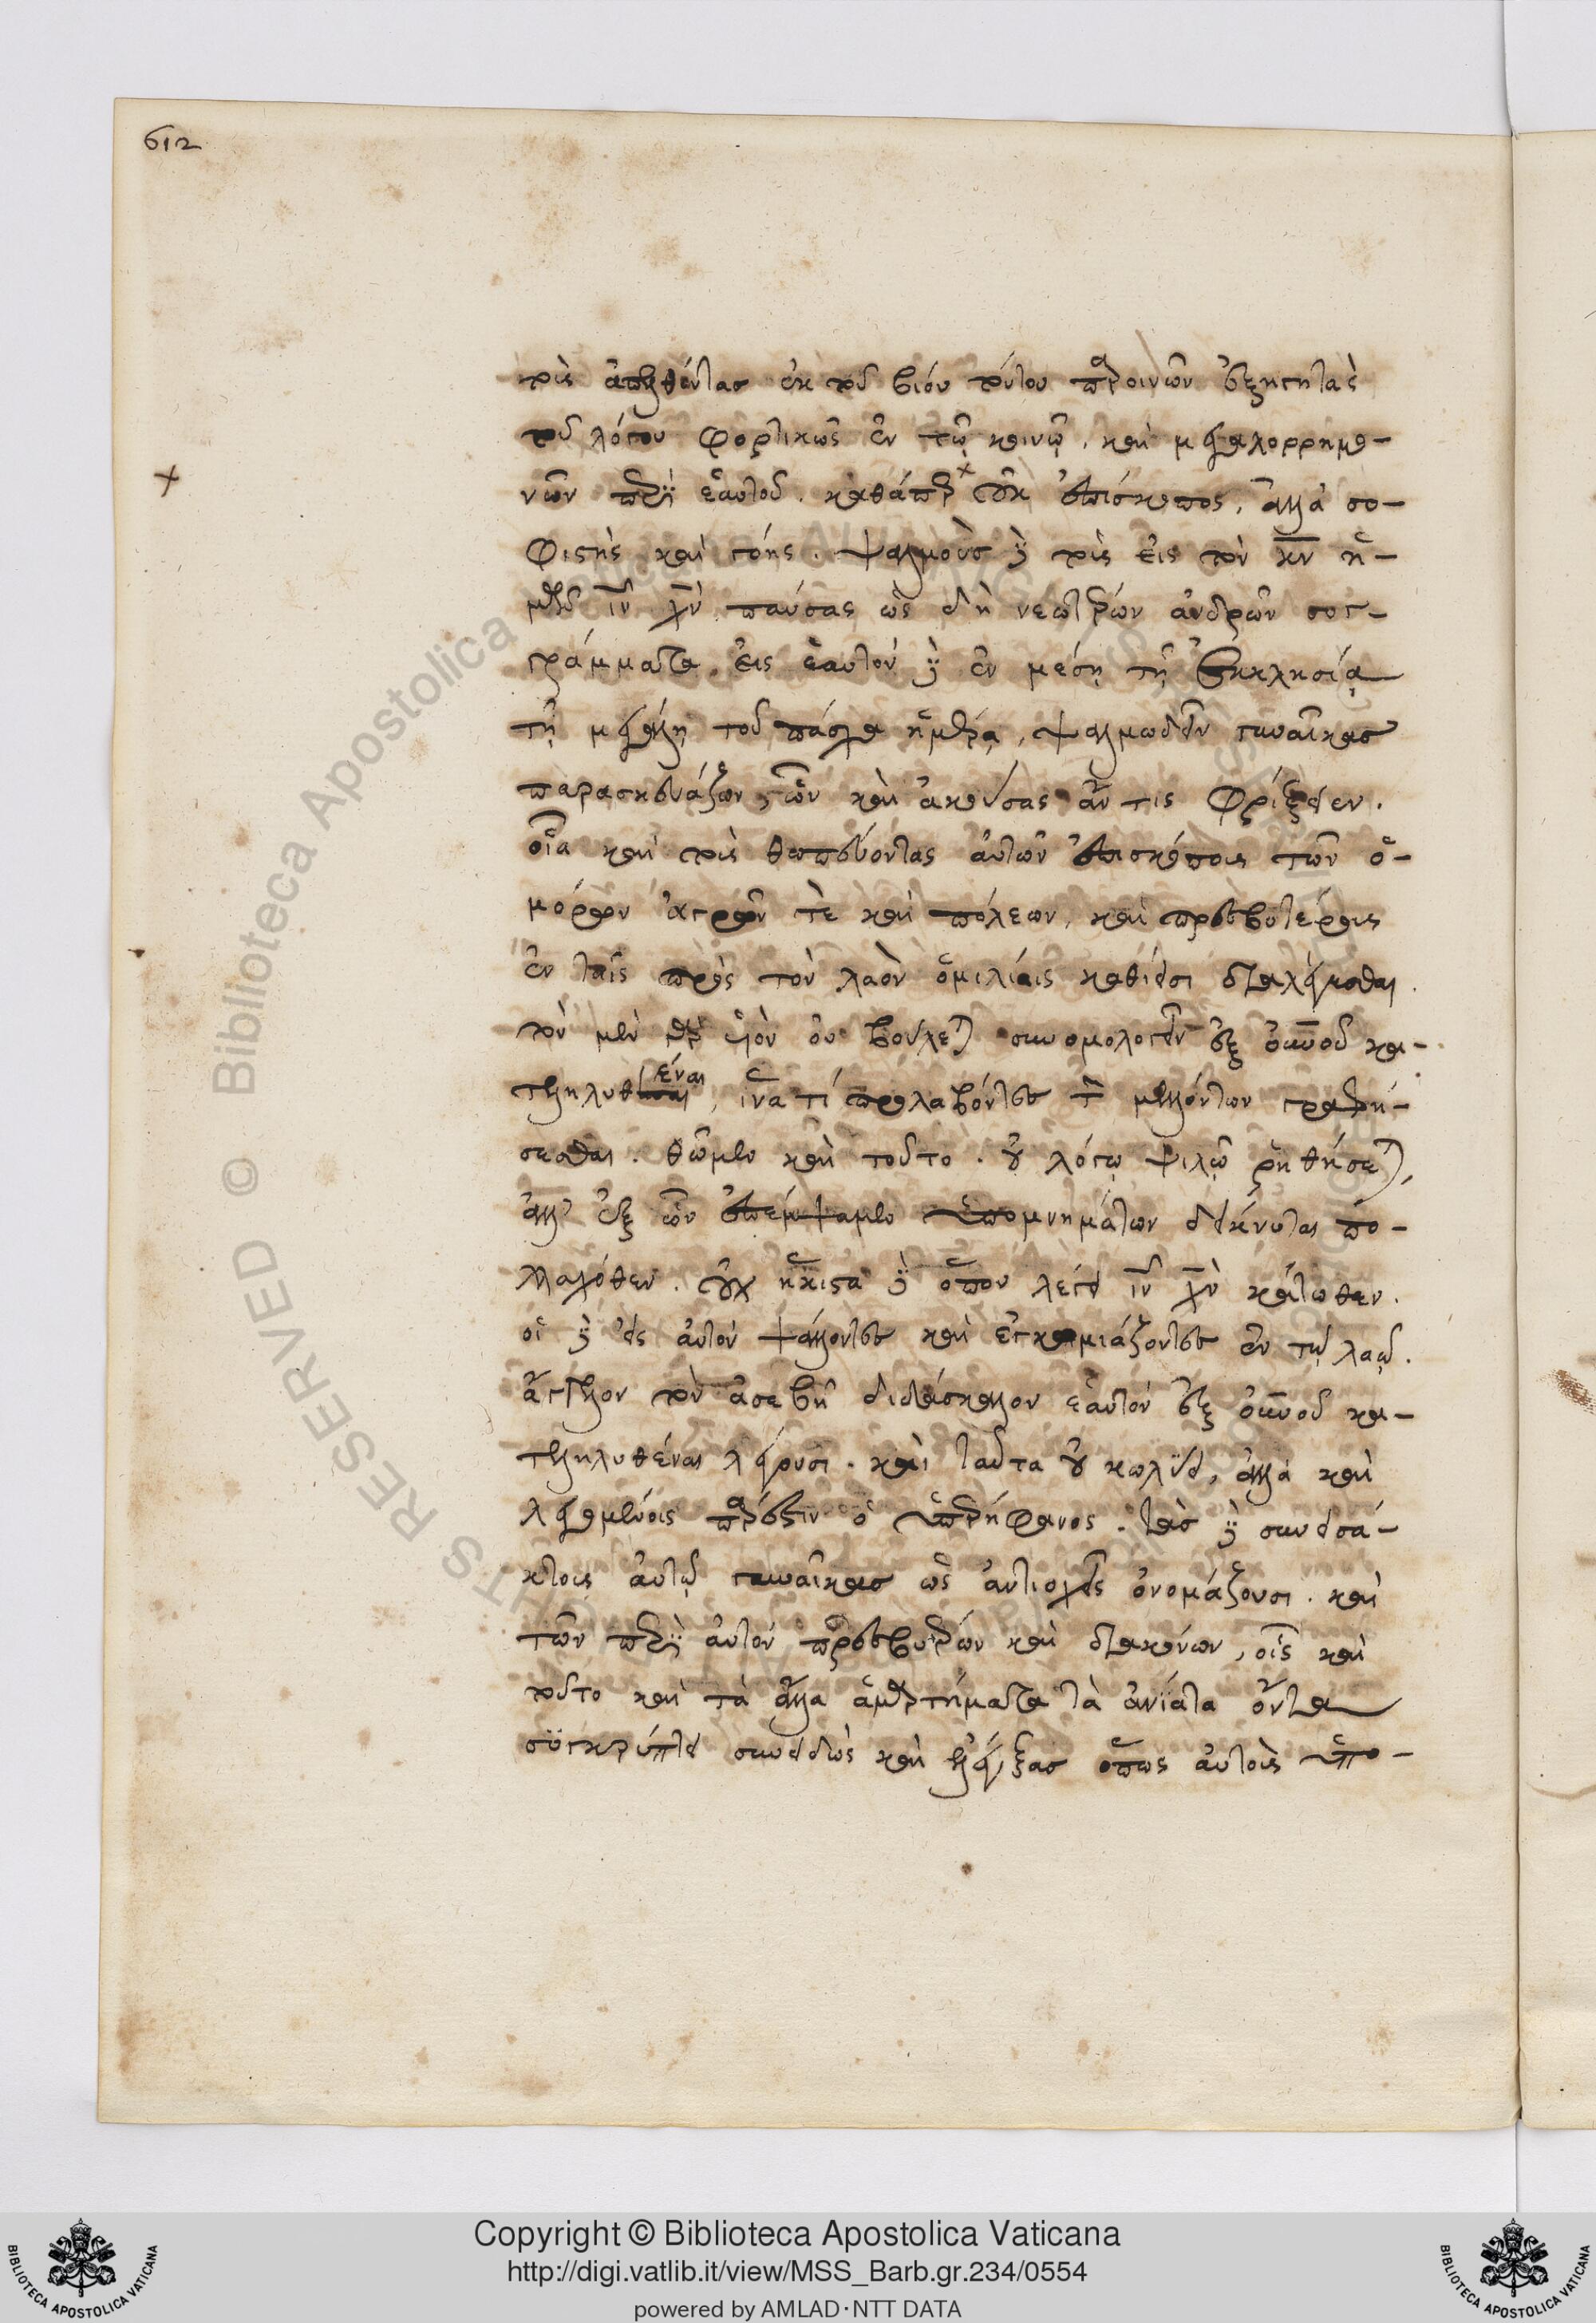 612
τοὺς ἀπελθόντας ἐκ τοῦ βίου τούτου παροινῶν ἐξηγητὰς
τοῦ λόγου φορτικῶς ἐν τῷ κοινῷ. καὶ μεγαλορρημο-
νῶν περὶ ἑαυτοῦ. καθάπερ οὐκ ἐπίσκοπος, ἀλλὰ σο-
φιστὴς καὶ γόης. ψαλμοὺς δὲ τοὺς εἰς τὸν κν ἡ-
μῶν ιν χν παύσας ὡς δὴ νεωτέρων ἀνδρῶν συγ-
γράμματα. εἰς ἑαυτὸν δὲ ἐν μέσῃ τῇ ἐκκλησίᾳ
τῇ μεγάλῃ τοῦ πάσχα ἡμέρᾳ, ψαλμωδεῖν γυναῖκας
παρασκευάζων, ὧν καὶ ἀκούσας ἄν τις φρίξειεν.
οἷα καὶ τοὺς θωπεύοντας αὐτὸν ἐπισκόπους τῶν ὁ-
μόρων ἀγρῶν τὲ καὶ πόλεων, καὶ πρεσβυτέρους
ἐν ταῖς πρὸς τὸν λαὸν ὁμιλίαις καθίησι διαλέγεσθαι.
τὸν μὲν γὰρ υἱὸν οὐ βούλεται συνομολογεῖν ἐξ οὐνοῦ κα-
τεληλυθέναι, ἵνα τί προλαβόντες τῶν μελλόντων γραφή-
σεσθαι. θῶμεν καὶ τοῦτο. οὐ λόγῳ ψιλῷ ῥηθήσεται,
ἀλλ' ἐξ ὧν ἐπέμψαμεν ὑπομνημάτων δείκνυται πο-
λλαχόθεν. οὐχ ἥκιστα δὲ ὅπου λέγει ιν χν κάτωθεν.
οἱ δὲ εἰς αὐτὸν ψάλλοντες καὶ ἐγκωμιάζοντες ἐν τῷ λαῷ.
ἄγγελον τὸν ἀσεβῆ διδάσκαλον ἑαυτὸν ἐξ οὐνοῦ κα-
τεληλυθέναι λέγουσι. καὶ ταῦτα οὐ κωλύει, ἀλλὰ καὶ
λεγομένοις πάρεστιν ὁ ὑπερήφανος. τὰς δὲ συνεισά-
κτους αὐτῷ γυναῖκας ὡς ἀντιοχεῖς ὀνομάζουσι. καὶ
τῶν περὶ αὐτὸν πρεσβυτέρων καὶ διακόνων, οἷς καὶ
τοῦτο καὶ τὰ ἄλλα ἁμαρτήματα τὰ ἀνίατα ὄντα
συγκρύπτει συνειδὼς καὶ ἐλέγξας ὅπως αὐτοὺς ὑπο-
Copyright © Biblioteca Apostolica Vaticana
http://digi.vatlib.it/view/MSS_Barb.gr.234/0554
powered by AMLAD·NTT DATA